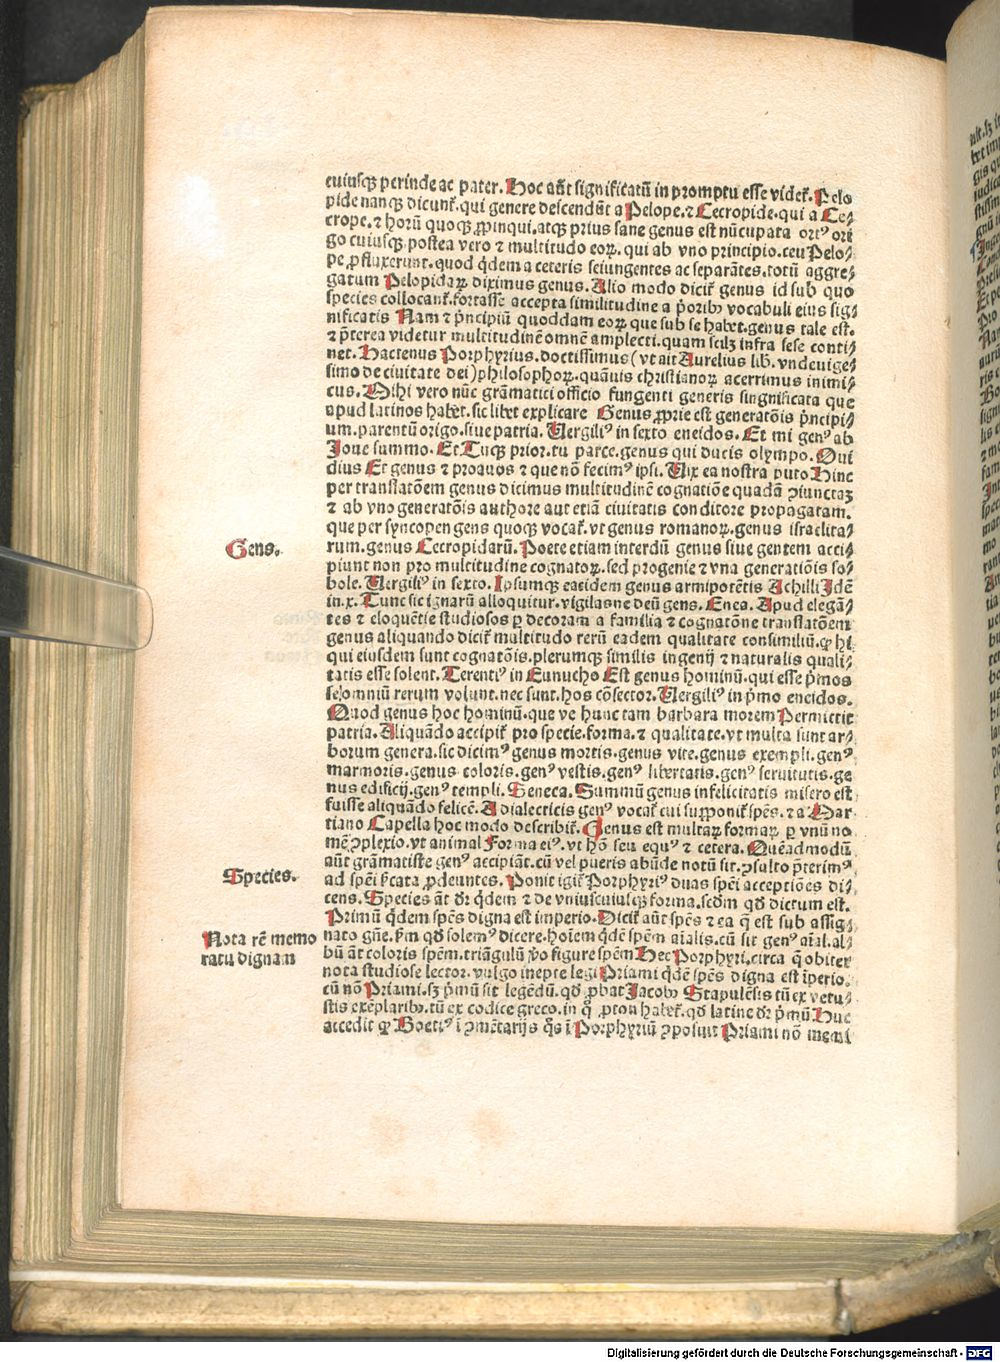 cuiusqꝫ perinde ac pater. Hoc aūt significatū in promptu esse videt̉. Pelo
pide nanqꝫ dicunt̉. qui genere descendūt a Pelope. ⁊ Cecropide. qui a Ce⸗
crope. ⁊ horū quoqꝫ ꝓpinqui. atqꝫ prius sane genus est nūcupata ort⁹ ori
go cuiusqꝫ. postea vero ⁊ multitudo eoꝝ. qui ab vno principio. ceu Pelo⸗
pe ꝓfluxerunt. quod q̄dem a ceteris seiungentes ac separātes. totū aggre⸗
gatum Pelopidaꝝ diximus genus. Alio modo dicit̉ genus id sub quo
species collocant̉. fortasse accepta similitudine a p̄orib⁹ vocabuli eius sig⸗
nificatis Nam ⁊ p̄ncipiū quoddam eoꝝ que sub se habet. genus tale est.
⁊ p̄terea videtur multitudinē omnē amplecti. quam scilꝫ infra sese conti⸗
net. Hactenus Porphyrius. doctissimus (vt ait Aurelius lib. vndeuige⸗
simo de ciuitate dei) philosophoꝝ. quāuis christianoꝝ acerrimus inimi⸗
cus. Mihi vero nūc grāmatici officio fungenti generis singnificata que
apud latinos habet. sic libet explicare Genus ꝓprie est generatōis p̄ncipi⸗
um. parentū origo. siue patria. Vergili⁹ in sexto eneidos. Et mi gen⁹ ab
Ioue summo. Et Tuqꝫ prior. tu parce. genus qui ducis olympo. Oui
dius Et genus ⁊ proauos ⁊ que nō fecim⁹ ipsi. Vix ea nostra puto Hinc
per translatōem genus dicimus multitudinē cognatiōe quadā ꝯiunctaꝫ
⁊ ab vno generatōis authore aut etiā ciuitatis conditore propagatam.
que per syncopen gens quoqꝫ vocat̉. vt genus romanoꝝ. genus israelita⸗
rum. genus Cecropidarū. Poete etiam interdū genus siue gentem acci⸗
piunt non pro multitudine cognatoꝝ. sed progenie ⁊ vna generatiōis so⸗
bole. Vergili⁹ in sexto. Ipsumqꝫ eacidem genus armipotētis Achilli Idē
in. x. Tunc sic ignarū alloquitur. vigilasne deū gens. Enea. Apud elegā⸗
tes ⁊ eloquētie studiosos ꝑ decoram a familia ⁊ cognatōne translatōem
genus aliquando dicit̉ multitudo rerū eadem qualitate consimiliū. ꝙ hi
qui eiusdem sunt cognatōis. plerumqꝫ similis ingenij ⁊ naturalis quali⸗
tatis esse solent. Terenti⁹ in Eunucho Est genus hominū. qui esse p̄mos
se omniū rerum volunt. nec sunt. hos cōsector. Vergili⁹ in p̄mo eneidos.
Quod genus hoc hominū. que ve hunc tam barbara morem Permittit
patria. Aliquādo accipit̉ pro specie. forma. ⁊ qualitate. vt multa sunt ar⸗
borum genera. sic dicim⁹ genus mortis. genus vite. genus exempli. gen⁹
marmoris. genus coloris. gen⁹ vestis. gen⁹ libertatis. gen⁹ seruitutis. ge
nus edificij. gen⁹ templi. Seneca. Summū genus infelicitatis misero est
fuisse aliquādo felicē. A dialecticis gen⁹ vocat̉ cui supponit̉ spēs. ⁊ a Mar⸗
tiano Capella hoc modo describit̉. Genus est multaꝝ formaꝝ ꝑ vnū no
mē ꝯplexio. vt animal Forma ei⁹. vt hō seu equ⁹ ⁊ cetera. Quēadmodū
aūt grāmatiste gen⁹ accipiāt. cū vel pueris abūde notū sit. ꝯsulto p̄terim⁹
ad spēi ꝓdeuntes. Ponit igit̉ Porphyri⁹ duas spēi acceptiōes di⸗
cens. Species aūt dr̄ q̄dem ⁊ de vniuscuiusqꝫ forma. scdm qd̄ dictum est.
Primū q̄dem spēs digna est imperio. Dicit̉ aūt spēs ⁊ ea q̄ est sub assig⸗
nato gn̄e. qd̄ solem⁹ dicere. hoīem q̄dē spēm aīalis. cū sit gen⁹ aīal. al⸗
bū aūt coloris spēm. triāgulū figure spēm Hec Porphyri. circa q̄ obiter
nota studiose lector. vulgo inepte legi Priami q̄dē spēs digna est īperio.
cū nō Priami. sꝫ p̄mū sit legēdū. qd̄ ꝓbat Iacob⁹ Stapulēsis tū ex vetu⸗
stis exēplarib⁹. tū ex codice greco. in q̄ ꝓton habet̉. qd̄ latine dr̄ p̄mū Huc
accedit ꝙ Boeti⁹ ī ꝯmētarijs q̄s ī Porphyriū ꝯposuit Priami nō memi
Gens.
Species.
Nota rē memo
ratu dignam
Digitalisierung gefördert durch die Deutsche Forschungsgemeinschaft - DFG